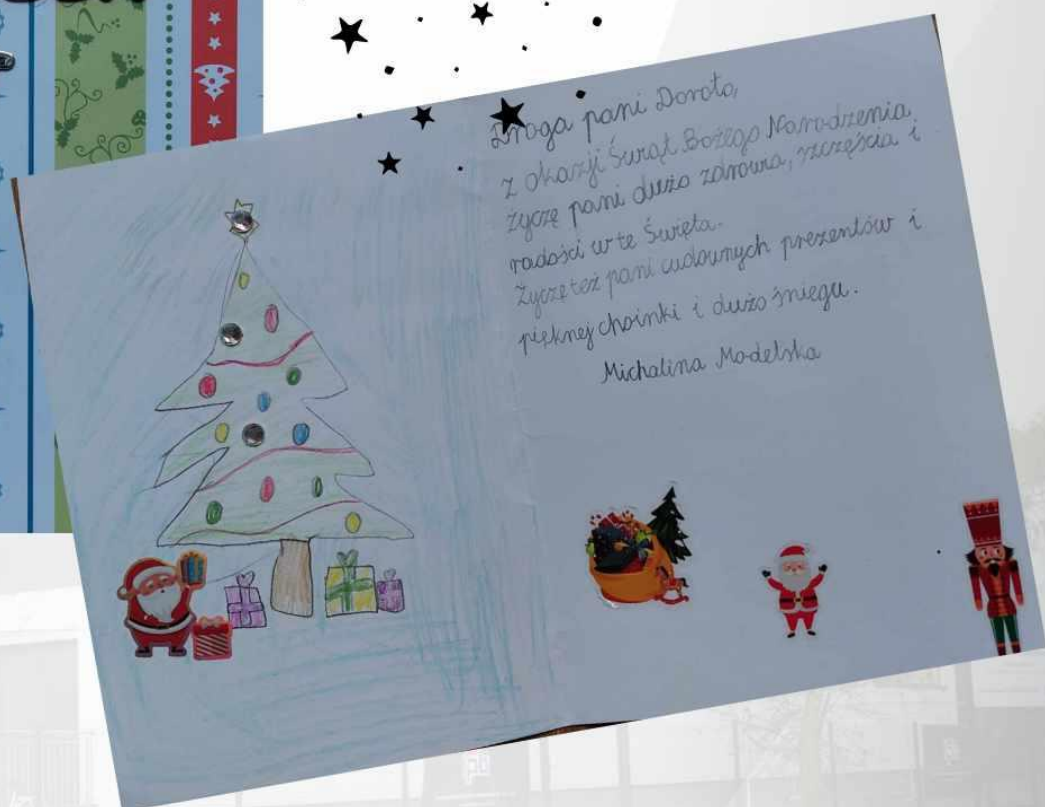 Droga pani Doroto,
z okazji Świąt Bożego Narodzenia
życzę pani dużo zdrowia, szczęścia i
radości w te Święta.
Życzę też pani cudownych prezentów i
pięknej choinki i dużo śniegu.
Michalina Modelska